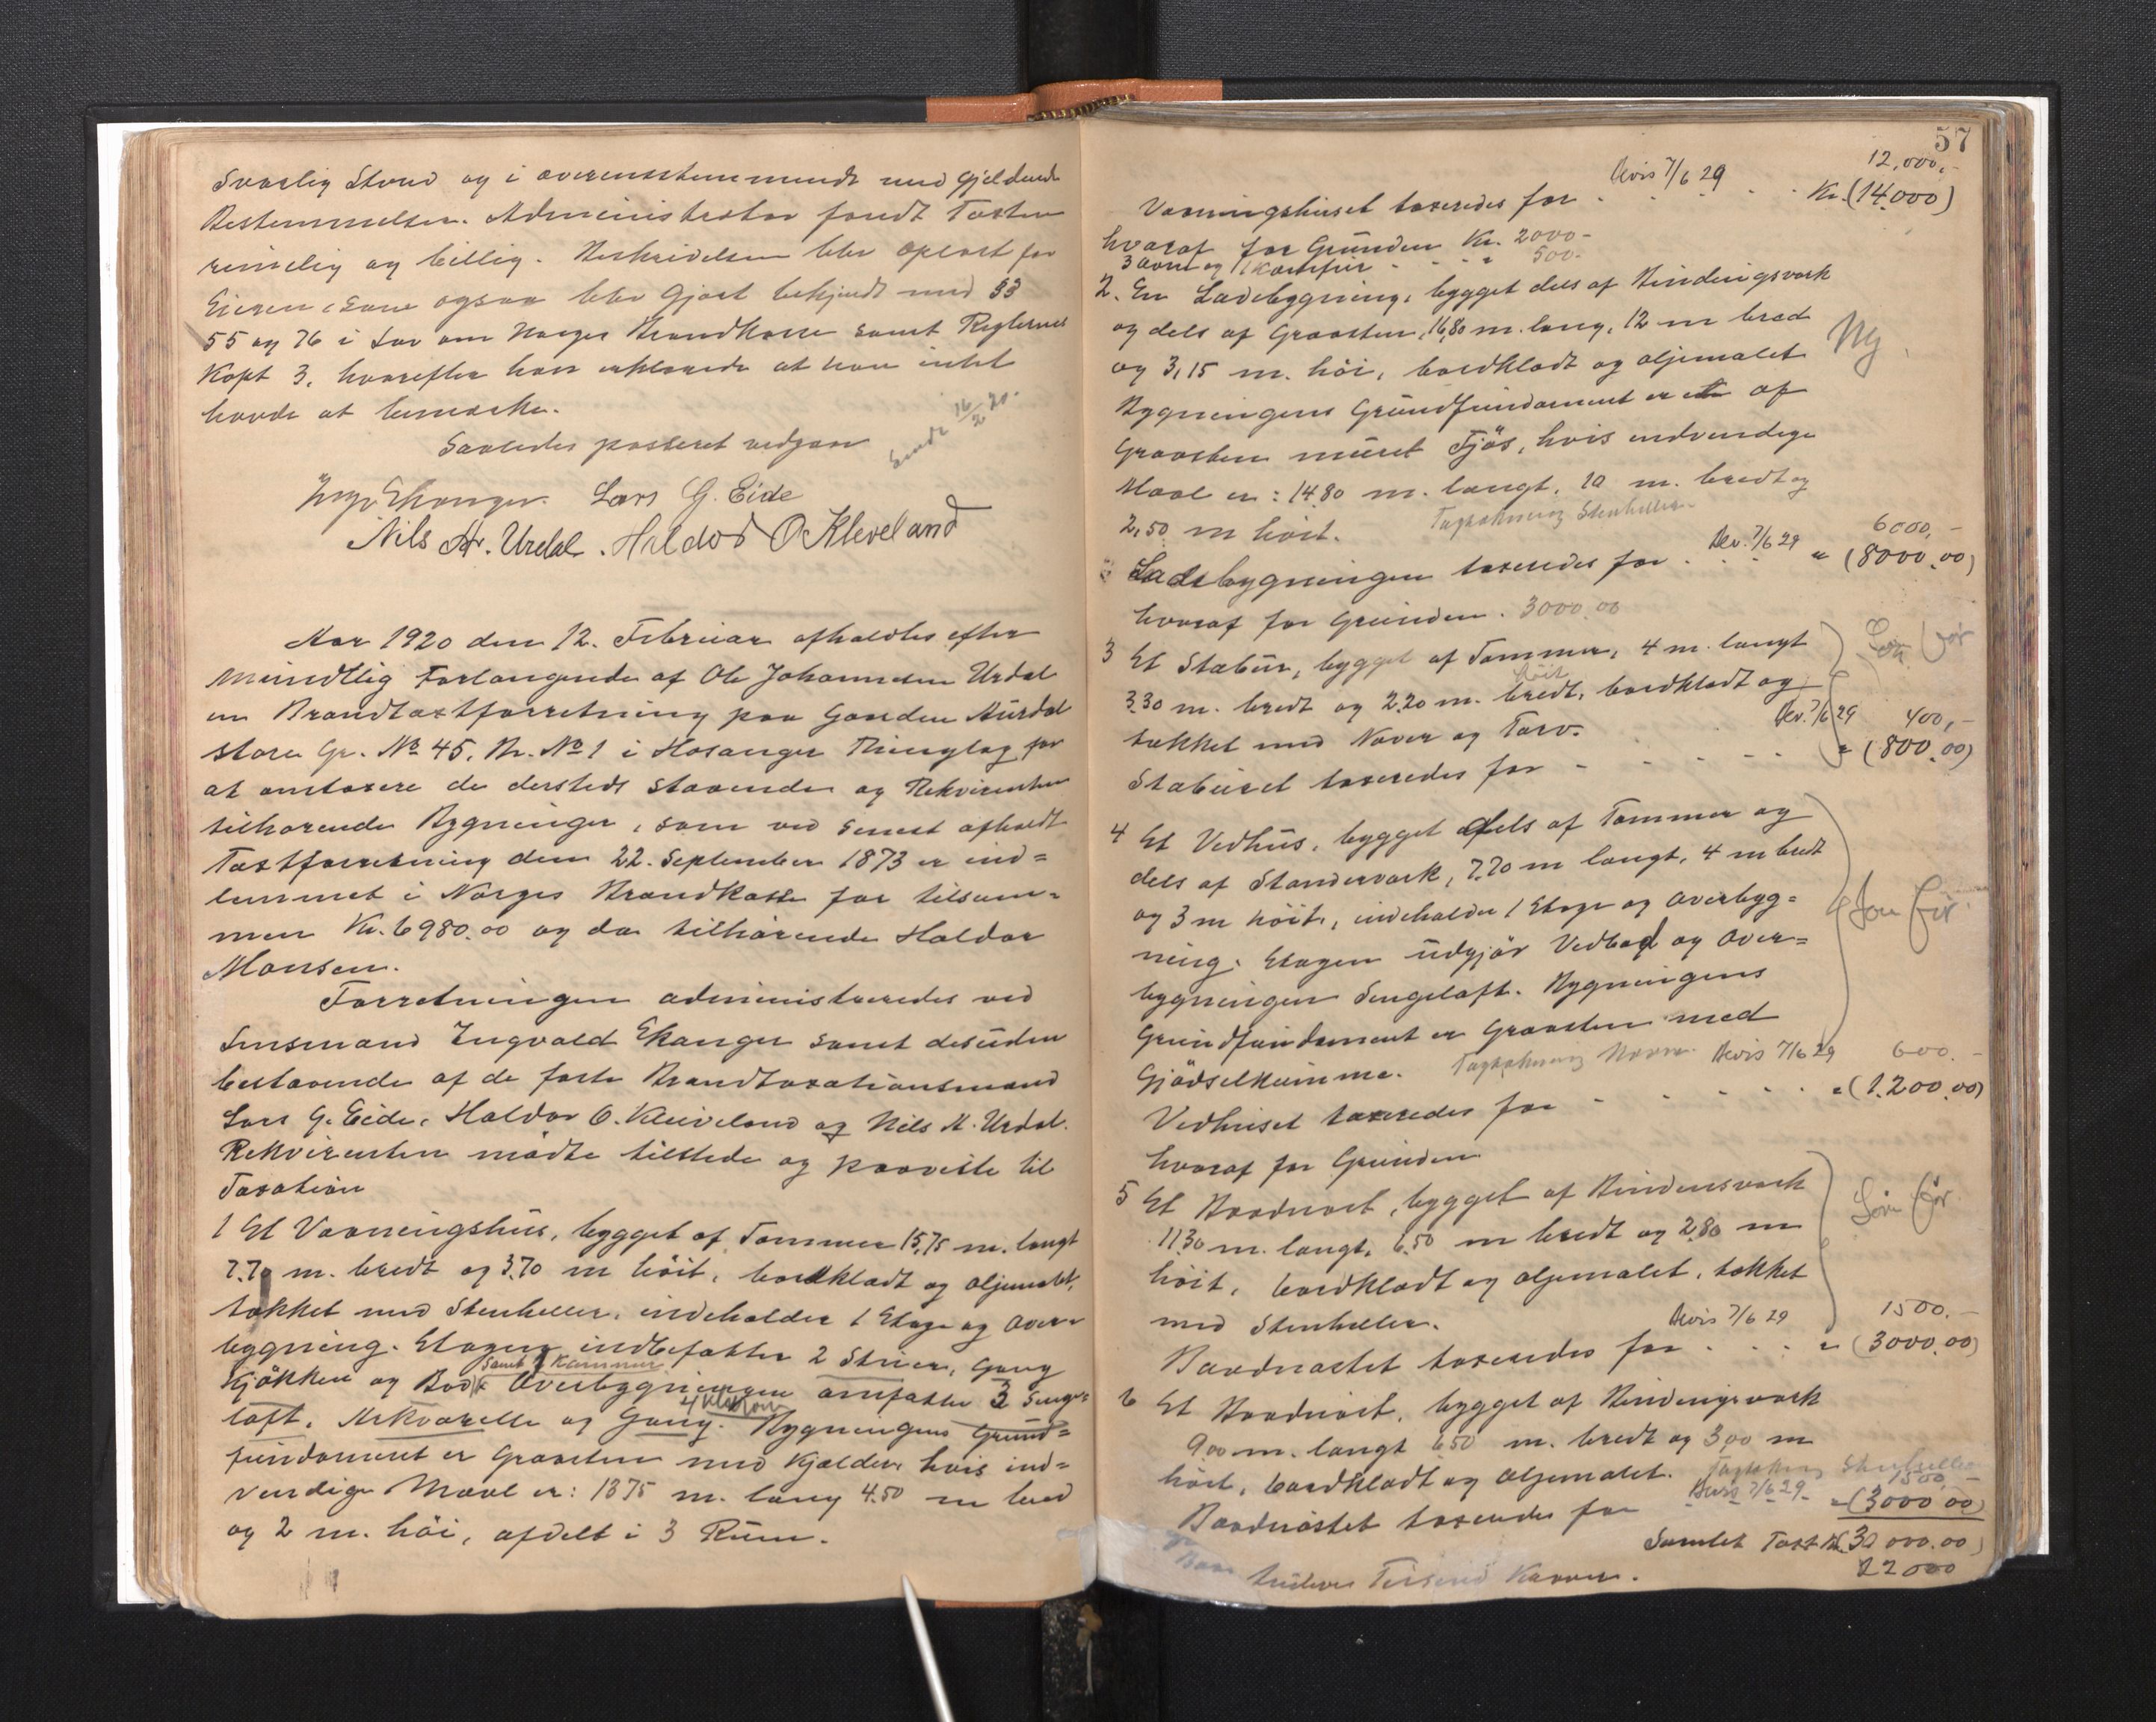 svarlig Stand og i overensstemmende med Gjeldende
Bestemmelser. Administrator fandt Taxten
rimelig og billig. Beskrivelsen blev oplæst for
Eieren, som ogsaa blev gjort bekjendt med §§
55 og 76 i Lov om Norges Brandkasse samt Reglernes
Kapt 3, hvorefter han erklærede at han intet
havde at bemærke.
Saaledes passeret vedgaar
Sendt 16/2 20.
Ingv Ekanger. Lars G. Eide
Nils A. Urdal. Haldor O Kleveland
Aar 1920 den 12. Februar afholdtes efter
Mundtlig Forlangende af Ole Johannesen Urdal
en Brandtaxtforretning paa Gaarden Aurdal
store Gr. No 45, Br. No 1 i Hosanger Thinglag for
at omtaxere de dersteds staaende og Rekvirenten
tilhørende Bygninger, som ved senest afholdt
Taxtforretning den 22. September 1873 er ind=
lemmet i Norges Brandkasse for tilsam=
men Kr. 6980.00 og da tilhørende Haldor
Monsen.
Forretningen administreredes ved
Lensmand Ingvald Ekanger samt desuden
bestaaende af de faste Brandtaxationsmænd
Lars G. Eide, Haldor O. Kleiveland og Nils A. Urdal.
Rekvirenten mødte tilstede og paaviste til
Taxation
1 Et Vaaningshus, bygget af Tømmer 15,75 m. langt
7.70 m. bredt og 3.70 m høit, bordklædt og oljemalet,
tækket med Stenheller, indeholder 1 Etage og Over=
bygning. Etagen indbefatter 2 Stuer, Gang
samt 1 Kammer
Kjøkken og Bod. Overbygningen omfatter 3 Senge=
loft, Arkværelse og Gang. Bygningens Grund=
fundament er Graasten med Kjælder, hvis ind=
vendige Maal er: 13 75 m. lang 4.50 m bred
og 2 m. høi, afdelt i 3 Rum.
57
Revis 7/6 29 12,000,-
Vaaningshuset taxeredes for Kr. (14.000)
hvoraf for Grunden Kr. 2000-
3 ovne og 1 Komfur " 500-
2. En Ladebygning, bygget dels af Bindingsværk
og dels af Graasten, 16,80 m. lang, 12 m bred
og 3,15 m. høi, bordklædt og oljemalet
Ny
Bygningens Grundfundament er et af
Graasten muret Fjøs, hvis indvendige
Maal er: 14.80 m. langt, 10 m. bredt og
2,50 m høit. Tagtækning Stenheller
Rev. 7/6 29 6000,-
Ladebygningen taxeredes for " (8000.00)
hvoraf for Grunden. 3000.00
3 Et Stabur, bygget af Tømmer, 4 m. langt
høit
3.30 m. bredt og 2.20 m. bredt, bordklædt og
tækket med Næver og Torv.
Rev. 7/6 29 400,-
Staburet taxeredes for - " (800.00)
4 Et Vedhus, bygget dels af Tømmer og
dels af Standerværk, 7.70 m langt, 4 m bredt
og 3 m høit, indeholder 1 Etage og Overbyg=
ning. Etagen udgjør Vedbod og Over=
bygningen Sengeloft. Bygningens
Grundfundament er Graasten med
Gjødselkumme. Tagtækning Næver. Revis 7/6 29 600.-
Vedhuset taxeredes for - " (1.200.00)
hvoraf for Grunden
5 Et Baadnøst, bygget af Bindensværk
11.30 m. langt, 6.50 m bredt og 2.80 m
høit, bordklædt og oljemalet, tækket
med Stenheller. Revis 7/6 29 1500.-
Baadnøstet taxeredes for " (3000.00)
6 Et Baadnøst, bygget af Bindingsværk
9.00 m. langt 6.50 m. bredt og 3.00 m
høit, bordklædt og oljemalet. Tagtækning Stenheller
Revis 7/6 29 1500,-
Baadnøstet taxeredes for " (3000.00)
Samlet Taxt Kr. 30 000.00)
22 000
Tusinde Kroner.